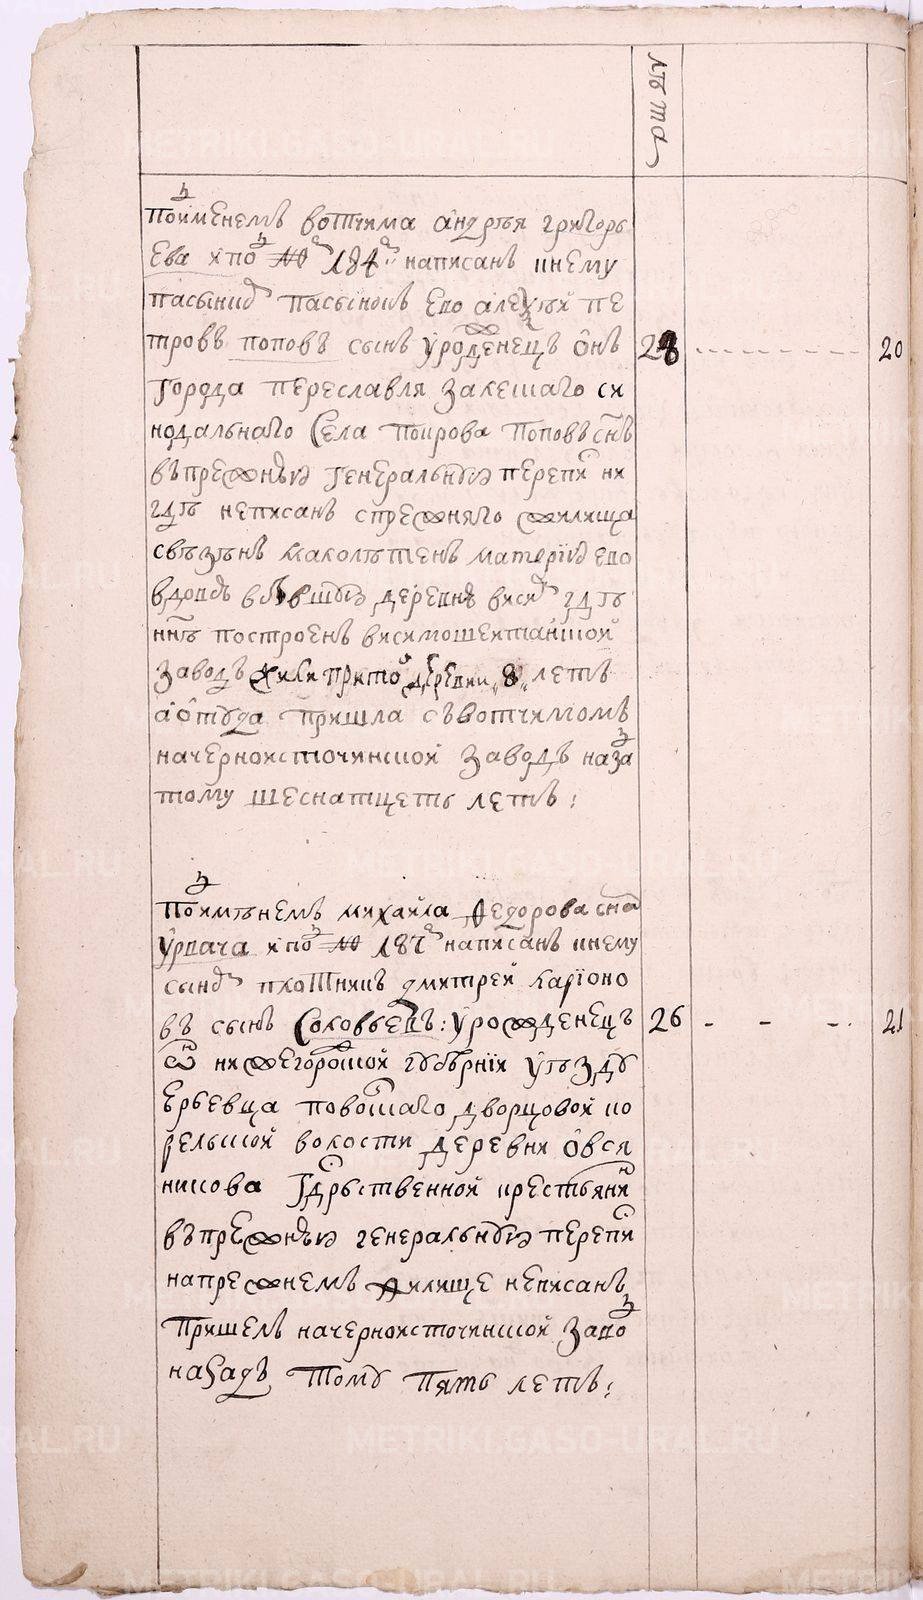 лѣта
под имѣнемъ вотчима андрѣя григорь
ева и под № 184 написанъ к нему
пасынку пасынокъ ево алеѯѣй пе
тровъ поповъ сынъ уроденецъ онъ 28 20
города переславля залешаго си
нодальнаго села покрова поповъ снъ
въ прежнѣю генеральную перепи ни
гдѣ неписанъ с прежняго жилища
свѣзѣнъ малолѣтенъ матерью ево
вдовѣ в бывшую деревню виси гдѣ
ннѣ построенъ висимошеитанской
заводъ жили при той деревни 8 летъ
а отуда пришла съ вотчимомъ
на черноисточинской заводъ наза
тому шеснатцеть летъ:
под имѣнемъ михаила Ѳедорова сна
урвача и под № 187 написанъ к нему
сыну плотникъ дмитрей карионо
въ сынъ соловьевъ: урожденецъ 26 21
ѿ нижегороцкой губѣрнии уѣзду
юрьевца поволскаго дворцовой ко
рельской волости деревни овся
никова гдрьственной крестьянин
въ прежнѣю генеральную перепи
на прежнемъ жилище неписанъ
пришелъ на черноисточинской заво
назадъ тому пять летъ:
METRIKI.GASO-URAL.RU